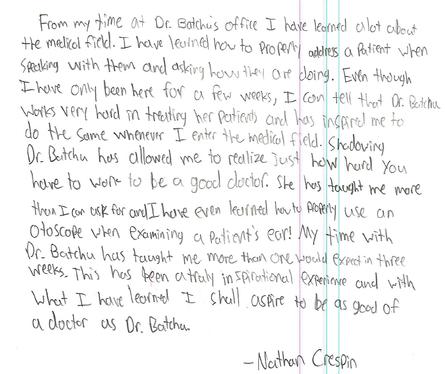 From my time at Dr. Batchu's office I have learned a lot about
the medical field. I have learned how to properly address a patient when
speaking with them and asking how they are doing. Even though
I have only been here for a few weeks, I can tell that Dr. Batchu
works very hard in treating her patients and has inspired me to
do the same whenever I enter the medical field. Shadowing
Dr. Batchu has allowed me to realize just how hard you
have to work to be a good doctor. She has taught me more
than I can ask for and I have even learned how to properly use an
otoscope when examining a patient's ear! My time with
Dr. Batchu has taught me more than one would expect in three
weeks. This has been a truly inspirational experience and with
what I have learned I shall aspire to be as good of
a doctor as Dr. Batchu.
- Nathan Crespin